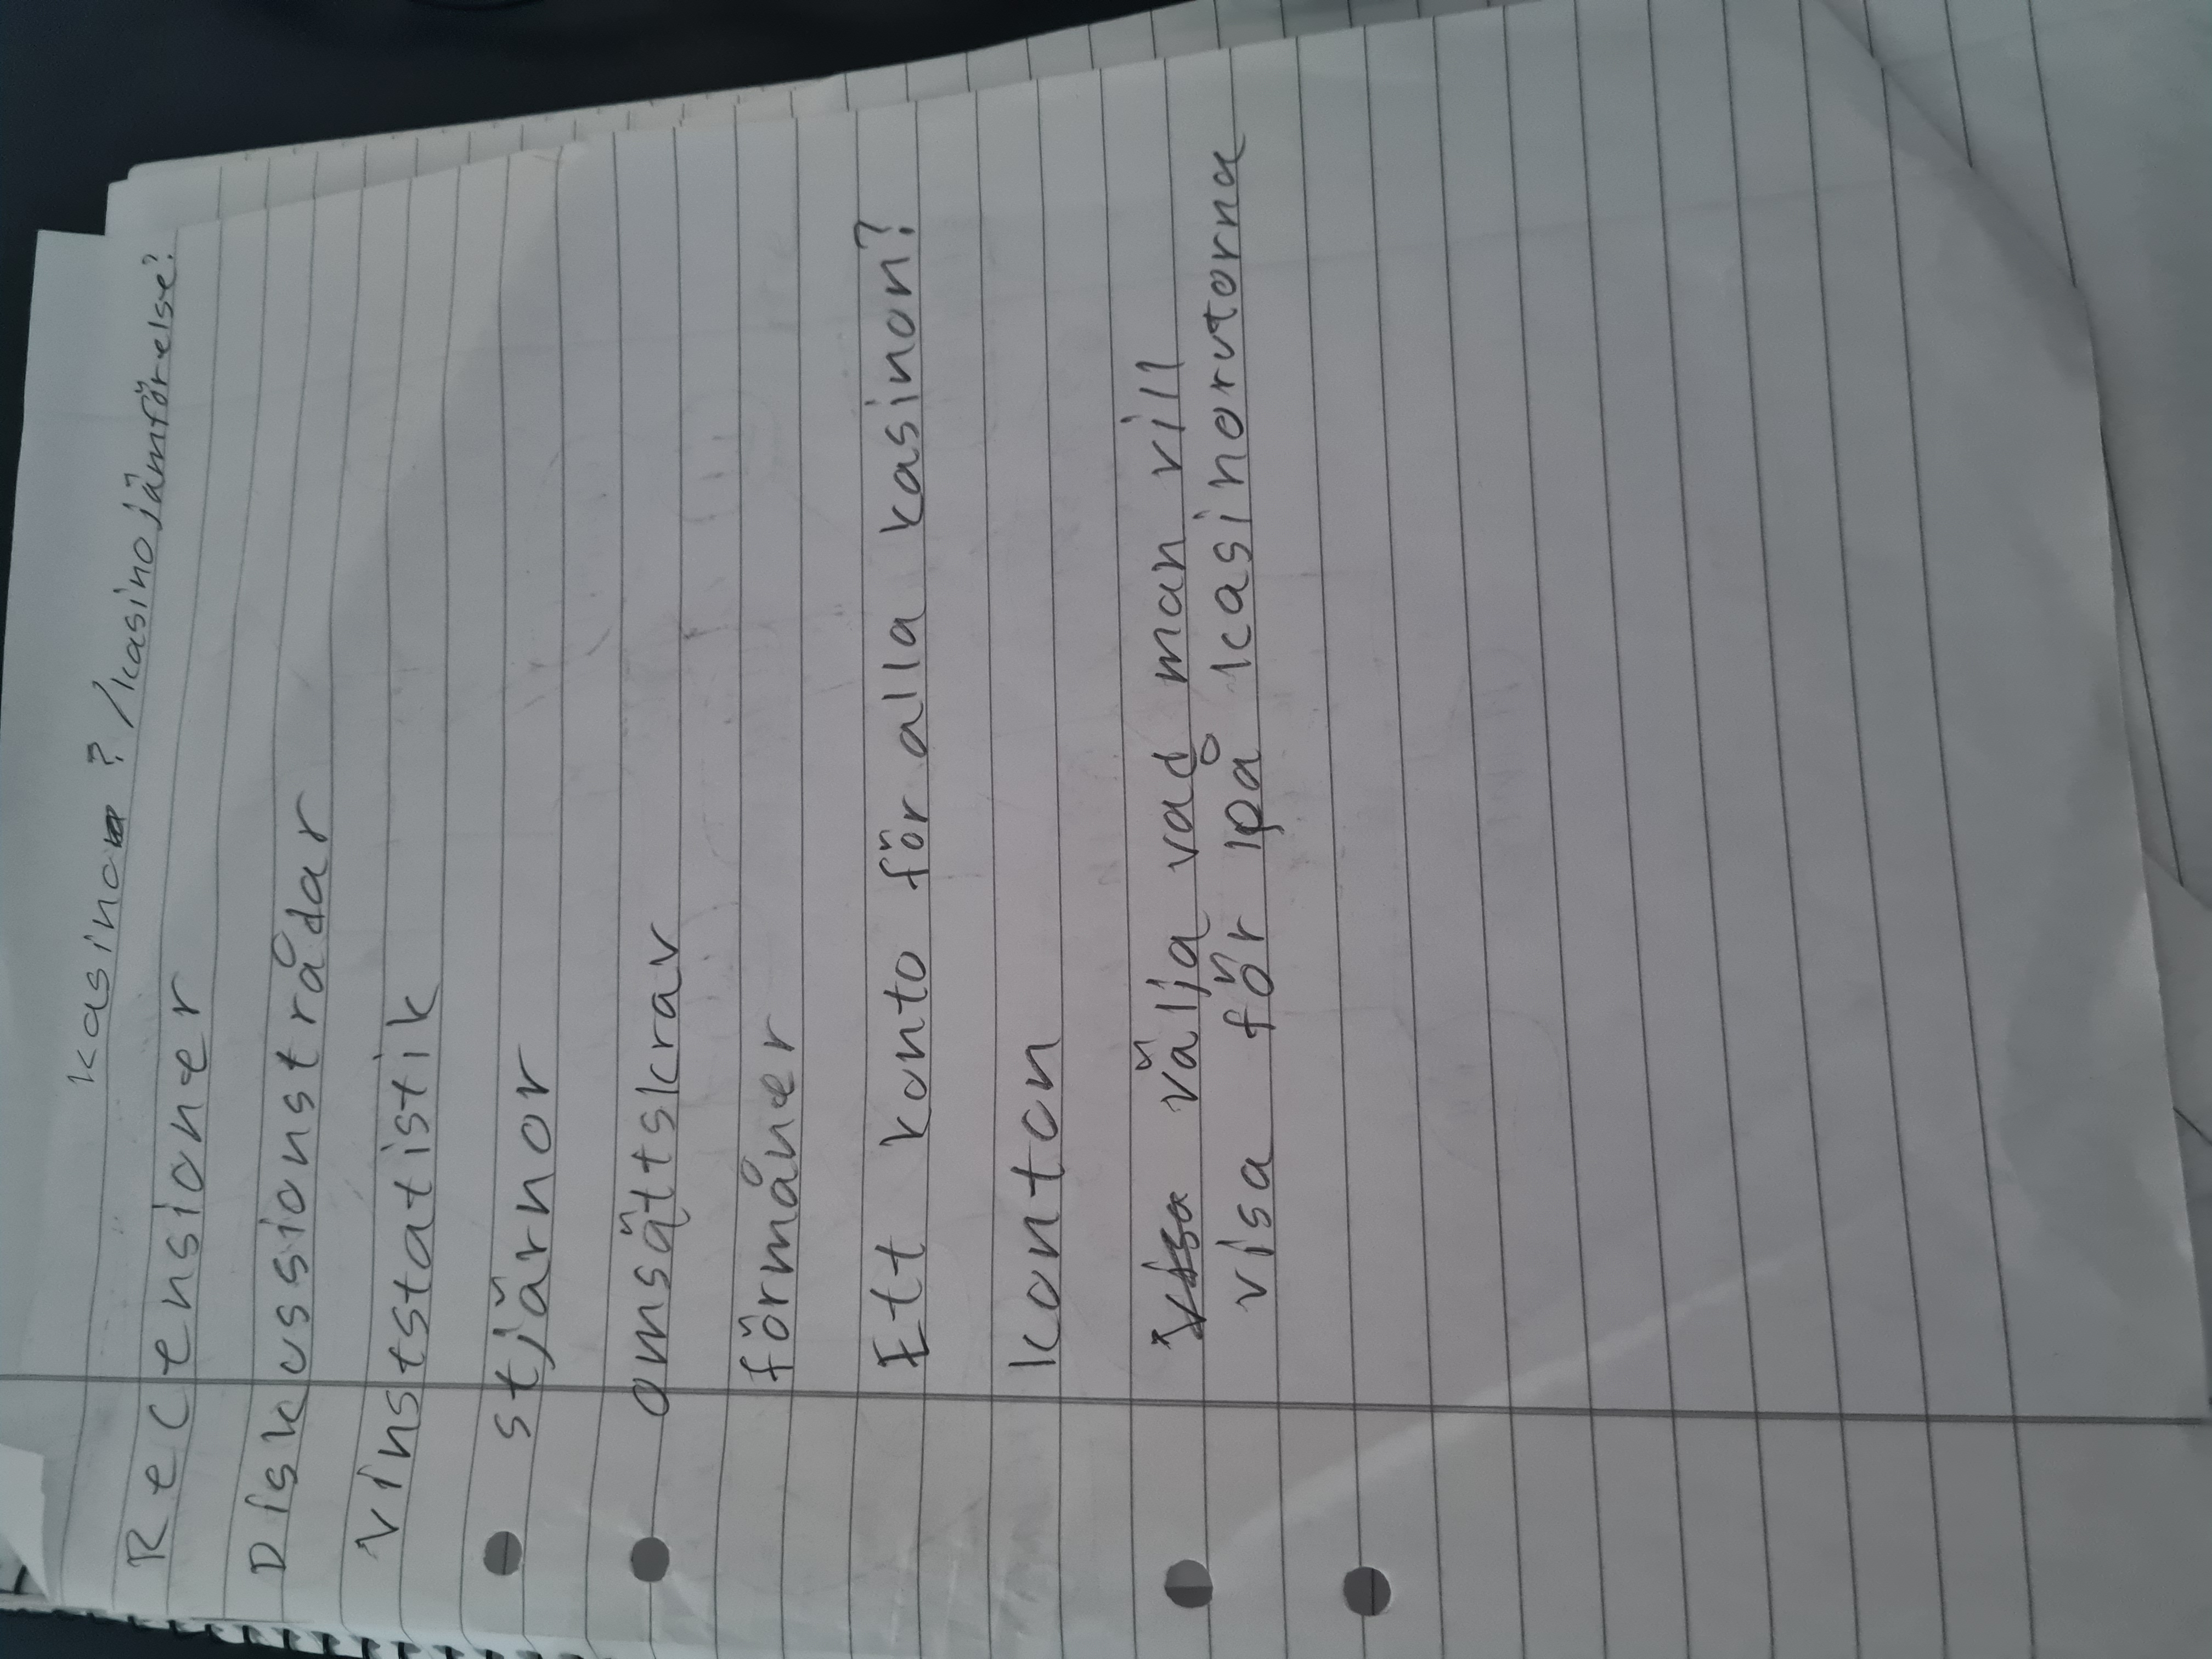 kasino ? /kasinojämförelse?
Recensioner
Diskussionstrådar
Vinststatistik
stjärnor
omsättskrav
förmåner
Ett konto för alla kasinon?
konton
välja vad man vill
visa för på kasinorutorna